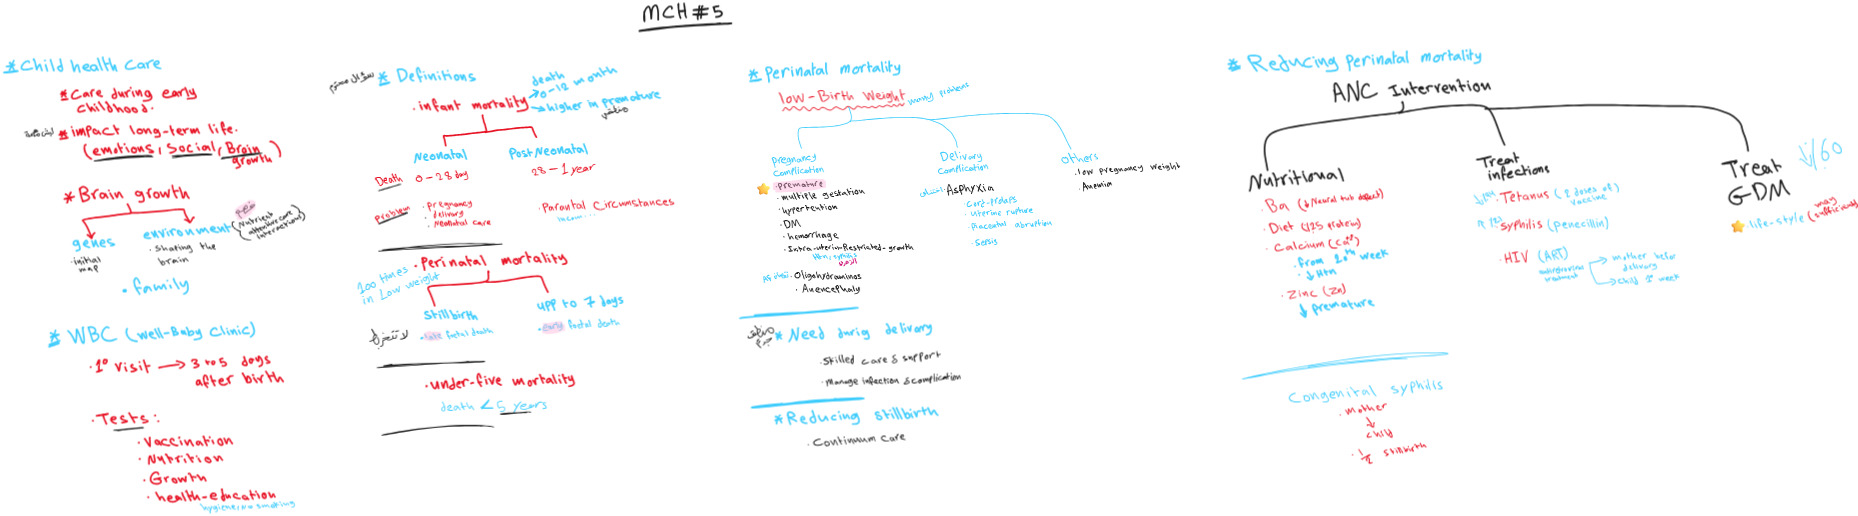 MCH #5
* Child health care
* Care during early
childhood.
* impact long-term life.
(emotions, Social, Brain
growth)
* Brain growth
genes
· initial
map
environment
(Nutrient
attentive care
interactions)
· shating the
brain
· family
* WBC (well-Baby Clinic)
· 1° visit → 3 to 5 days
after birth
· Tests :
· Vaccination
· Nutrition
· Growth
· health-education
hygiene, no smoking
* Definitions
· infant mortality
→ death
0-12 month
→ higher in premature
Neonatal
Post Neonatal
Death
0-28 day
28-1 year
Problem
· pregnancy
· delivery
· Neonatal care
· Parantal Circumstances
income...
· Perinatal mortality
100 times
in Low weight
Stillbirth
· late foetal death
upp to 7 days
· early foetal death
· under-five mortality
death < 5 years
* Perinatal mortality
low-Birth Weight
many problems
pregnancy
Complication
· premature
· multiple gestation
· hypertention
· DM
· hemorrhage
· Intra-uterin-Restriated-growth
Htn, syphilis
· Oligohydraminos
· Anencephaly
Delivary
Complication
Asphyxia
· Cord-Prolaps
· Uterine rupture
· Placental abruption
· Sepsis
others
· low pregnancy weight
· Anemia
* Need durig delivery
· Skilled care & support
· Manage infection & complication
* Reducing stillbirth
· Continuum care
* Reducing perinatal mortality
ANC Intervention
Nutritional
· B9 (↓Neural tub defect)
· Diet (↓25 protein)
· Calcium (Ca²⁺)
· from 20th week
· ↓ Htn
· Zinc (Zn)
↓ premature
Treat
infections
· Tetanus (2 doses of
vaccine)
· Syphilis (penecillin)
· HIV (ART)
antiretroviral
treatment
→ mother befor
delivery
→ child 1° week
Treat
GDM
↓%60
· life-style (may
sufficiently)
Congenital syphilis
· mother
↓
child
· ½ stillbirth